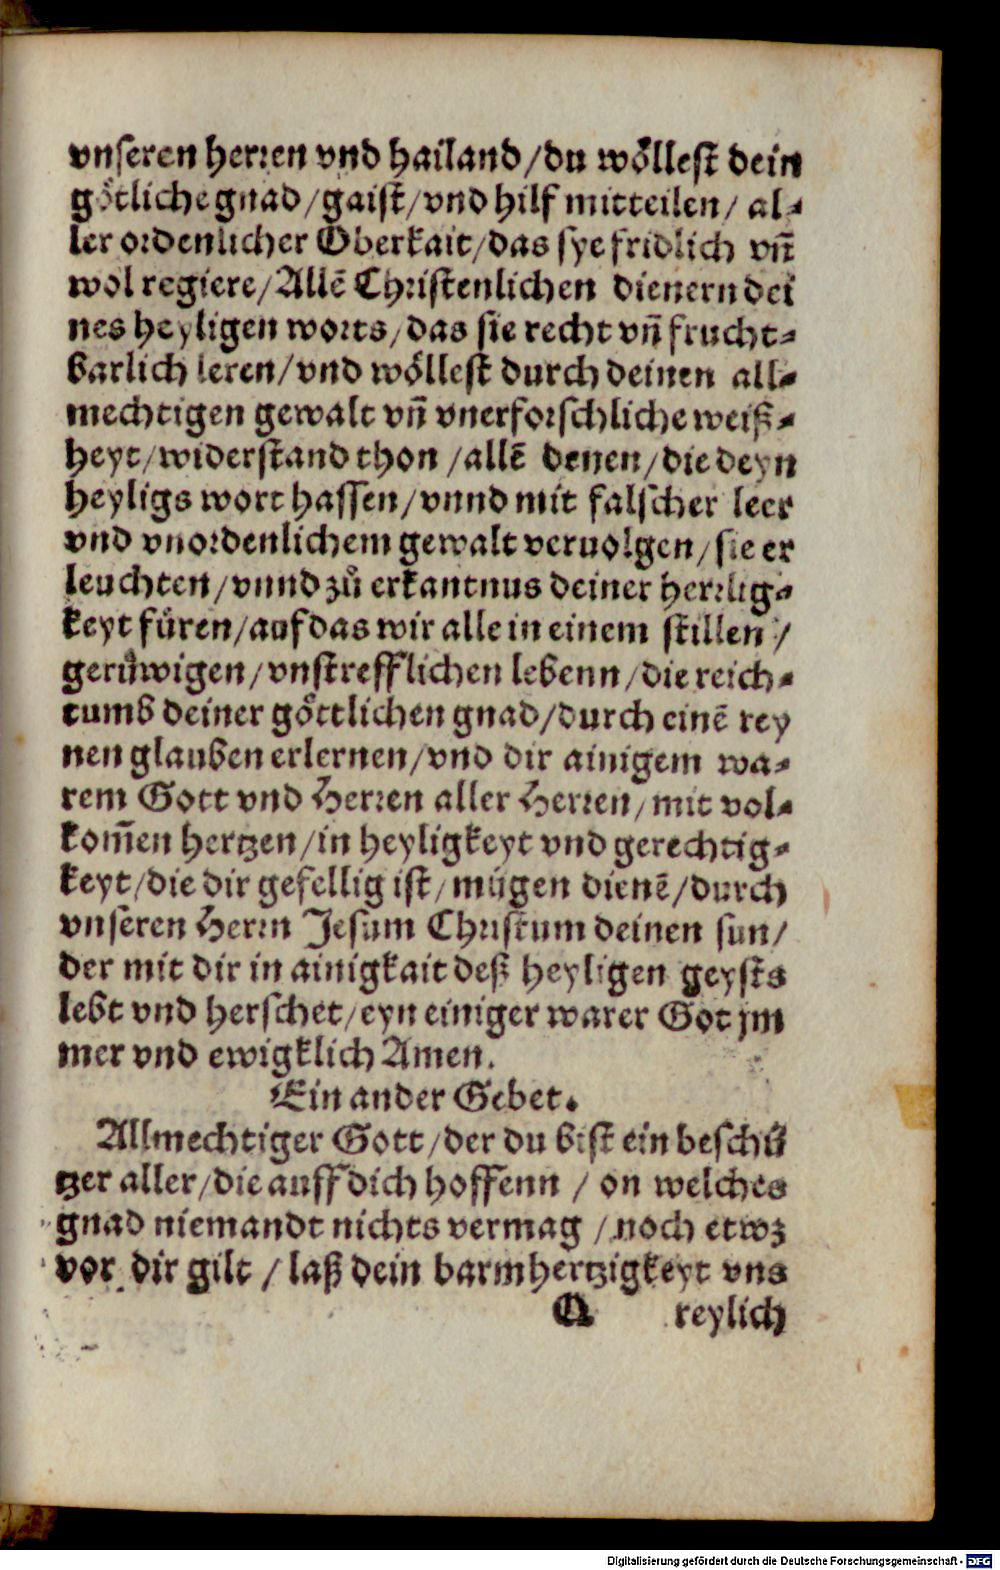 vnſeren herren vnd hailand/du woͤlleſt dein
goͤtliche gnad/gaiſt/vnd hilf mitteilen/ al⸗
ler ordenlicher Oberkait/das ſye fridlich vn̄
wol regiere/Allē Chriſtenlichen dienern dei
nes heyligen worts/das ſie recht vn̄ frucht⸗
barlich leren/vnd woͤlleſt durch deinen all⸗
mechtigen gewalt vn̄ vnerforſchliche weiß⸗
heyt/widerſtand thon /allē denen/die deyn
heyligs wort haſſen/vnnd mit falſcher leer
vnd vnordenlichem gewalt veruolgen/ſie er
leuchten/vnnd zů erkantnus deiner herrlig⸗
keyt fuͤren/auf das wir alle in einem ſtillen /
gerůwigen/vnſtrefflichen lebenn/die reich⸗
tumb deiner goͤttlichen gnad/durch einē rey
nen glauben erlernen/vnd dir ainigem wa⸗
rem Gott vnd Herren aller Herren/mit vol⸗
kom̄en hertzen/in heyligkeyt vnd gerechtig⸗
keyt/die dir gefellig iſt/muͤgen dienē/durch
vnſeren Herrn Jeſum Chriſtum deinen ſun/
der mit dir in ainigkait deß heyligen geyſts
lebt vnd herſchet/eyn einiger warer Got jm
mer vnd ewigklich Amen.
Ein ander Gebet.
Allmechtiger Gott/der du biſt ein beſchuͤ
tzer aller/die auff dich hoffenn / on welches
gnad niemandt nichts vermag /noch etwz
vor dir gilt / laß dein barmhertzigkeyt vns
Q reylich
Digitalisierung gefördert durch die Deutsche Forschungsgemeinschaft - DFG